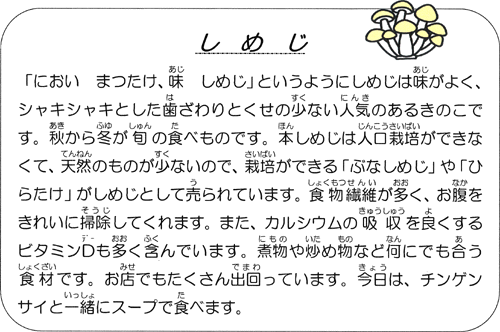 しめじ
「におい　まつたけ、味　しめじ」というようにしめじは味がよく、
シャキシャキとした歯ざわりとくせの少ない人気のあるきのこで
す。秋から冬が旬の食べものです。本しめじは人口栽培ができな
くて、天然のものが少ないので、栽培ができる「ぶなしめじ」や「ひ
らたけ」がしめじとして売られています。食物繊維が多く、お腹を
きれいに掃除してくれます。また、カルシウムの吸収を良くする
ビタミンDも多く含んでいます。煮物や炒め物など何にでも合う
食材です。お店でもたくさん出回っています。今日は、チンゲン
サイと一緒にスープで食べます。